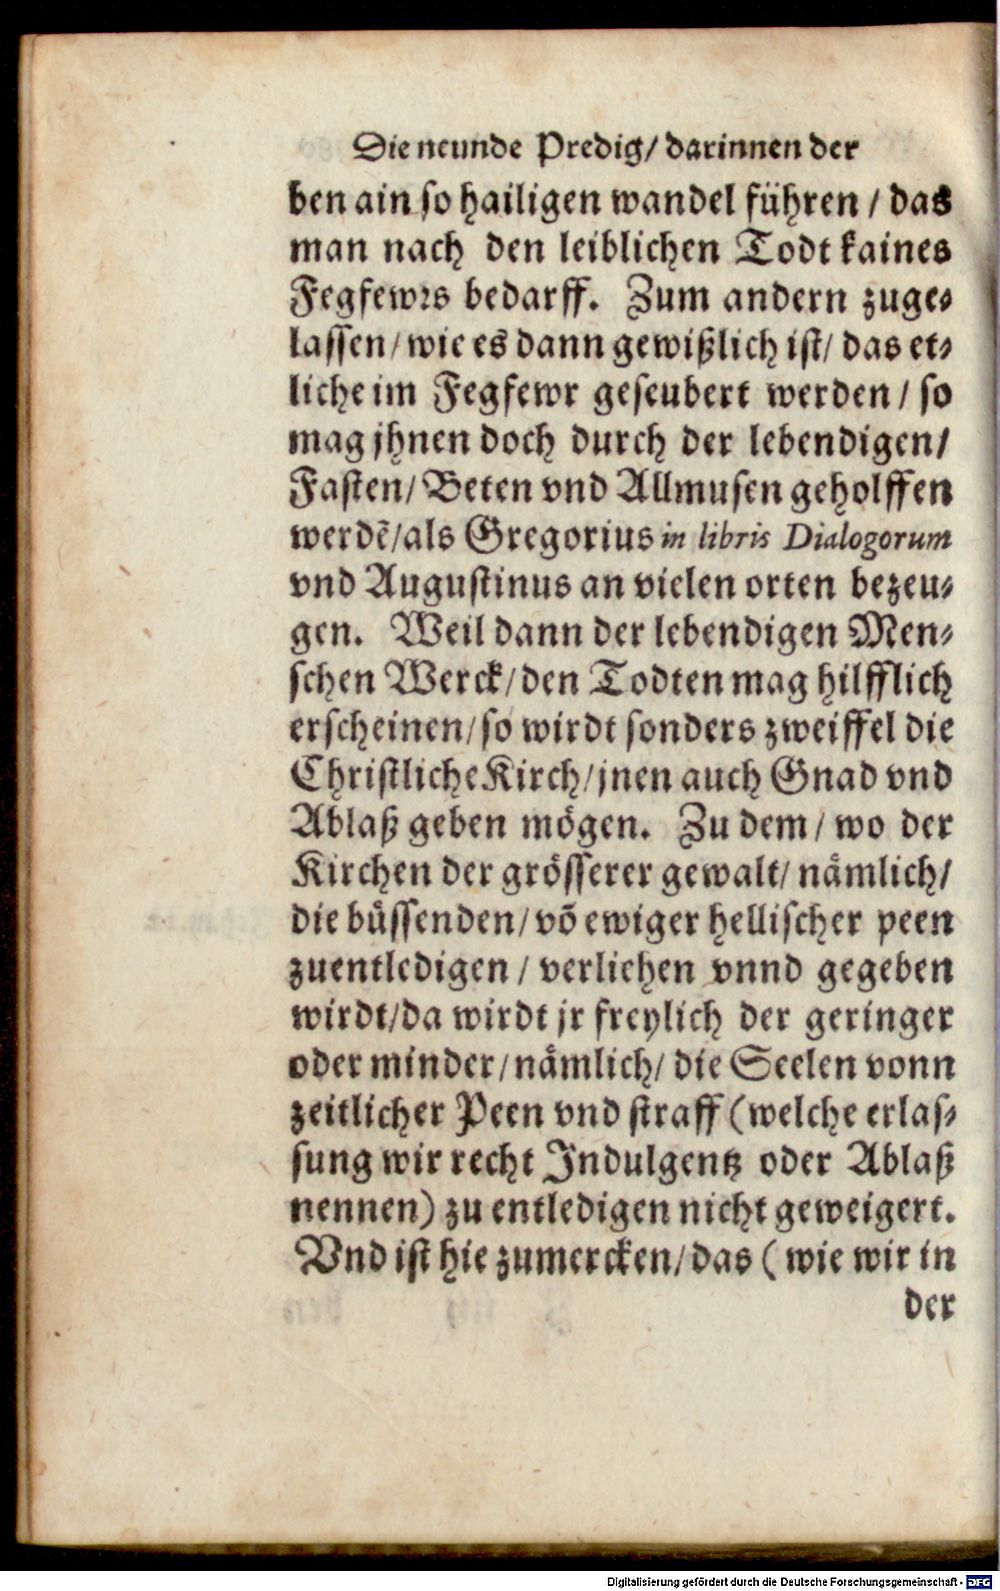 Die neunde Predig/ darinnen der
ben ain so hailigen wandel führen / das
man nach den leiblichen Todt kaines
Fegfewrs bedarff. Zum andern zuge-
lassen/ wie es dann gewißlich ist/ das et-
liche im Fegfewr geseubert werden / so
mag jhnen doch durch der lebendigen/
Fasten/ Beten vnd Allmusen geholffen
werdẽ/als Gregorius in libris Dialogorum
vnd Augustinus an vielen orten bezeu-
gen. Weil dann der lebendigen Men-
schen Werck/ den Todten mag hilfflich
erscheinen/ so wirdt sonders zweiffel die
Christliche Kirch/ jnen auch Gnad vnd
Ablaß geben mögen. Zu dem / wo der
Kirchen der grösserer gewalt/ nämlich/
die büssenden/ võ ewiger hellischer peen
zuentledigen / verliehen vnnd gegeben
wirdt/da wirdt jr freylich der geringer
oder minder/ nämlich/ die Seelen vonn
zeitlicher Peen vnd straff (welche erlas-
sung wir recht Indulgentz oder Ablaß
nennen) zu entledigen nicht geweigert.
Vnd ist hie zumercken/ das ( wie wir in
der
Digitalisierung gefördert durch die Deutsche Forschungsgemeinschaft - DFG